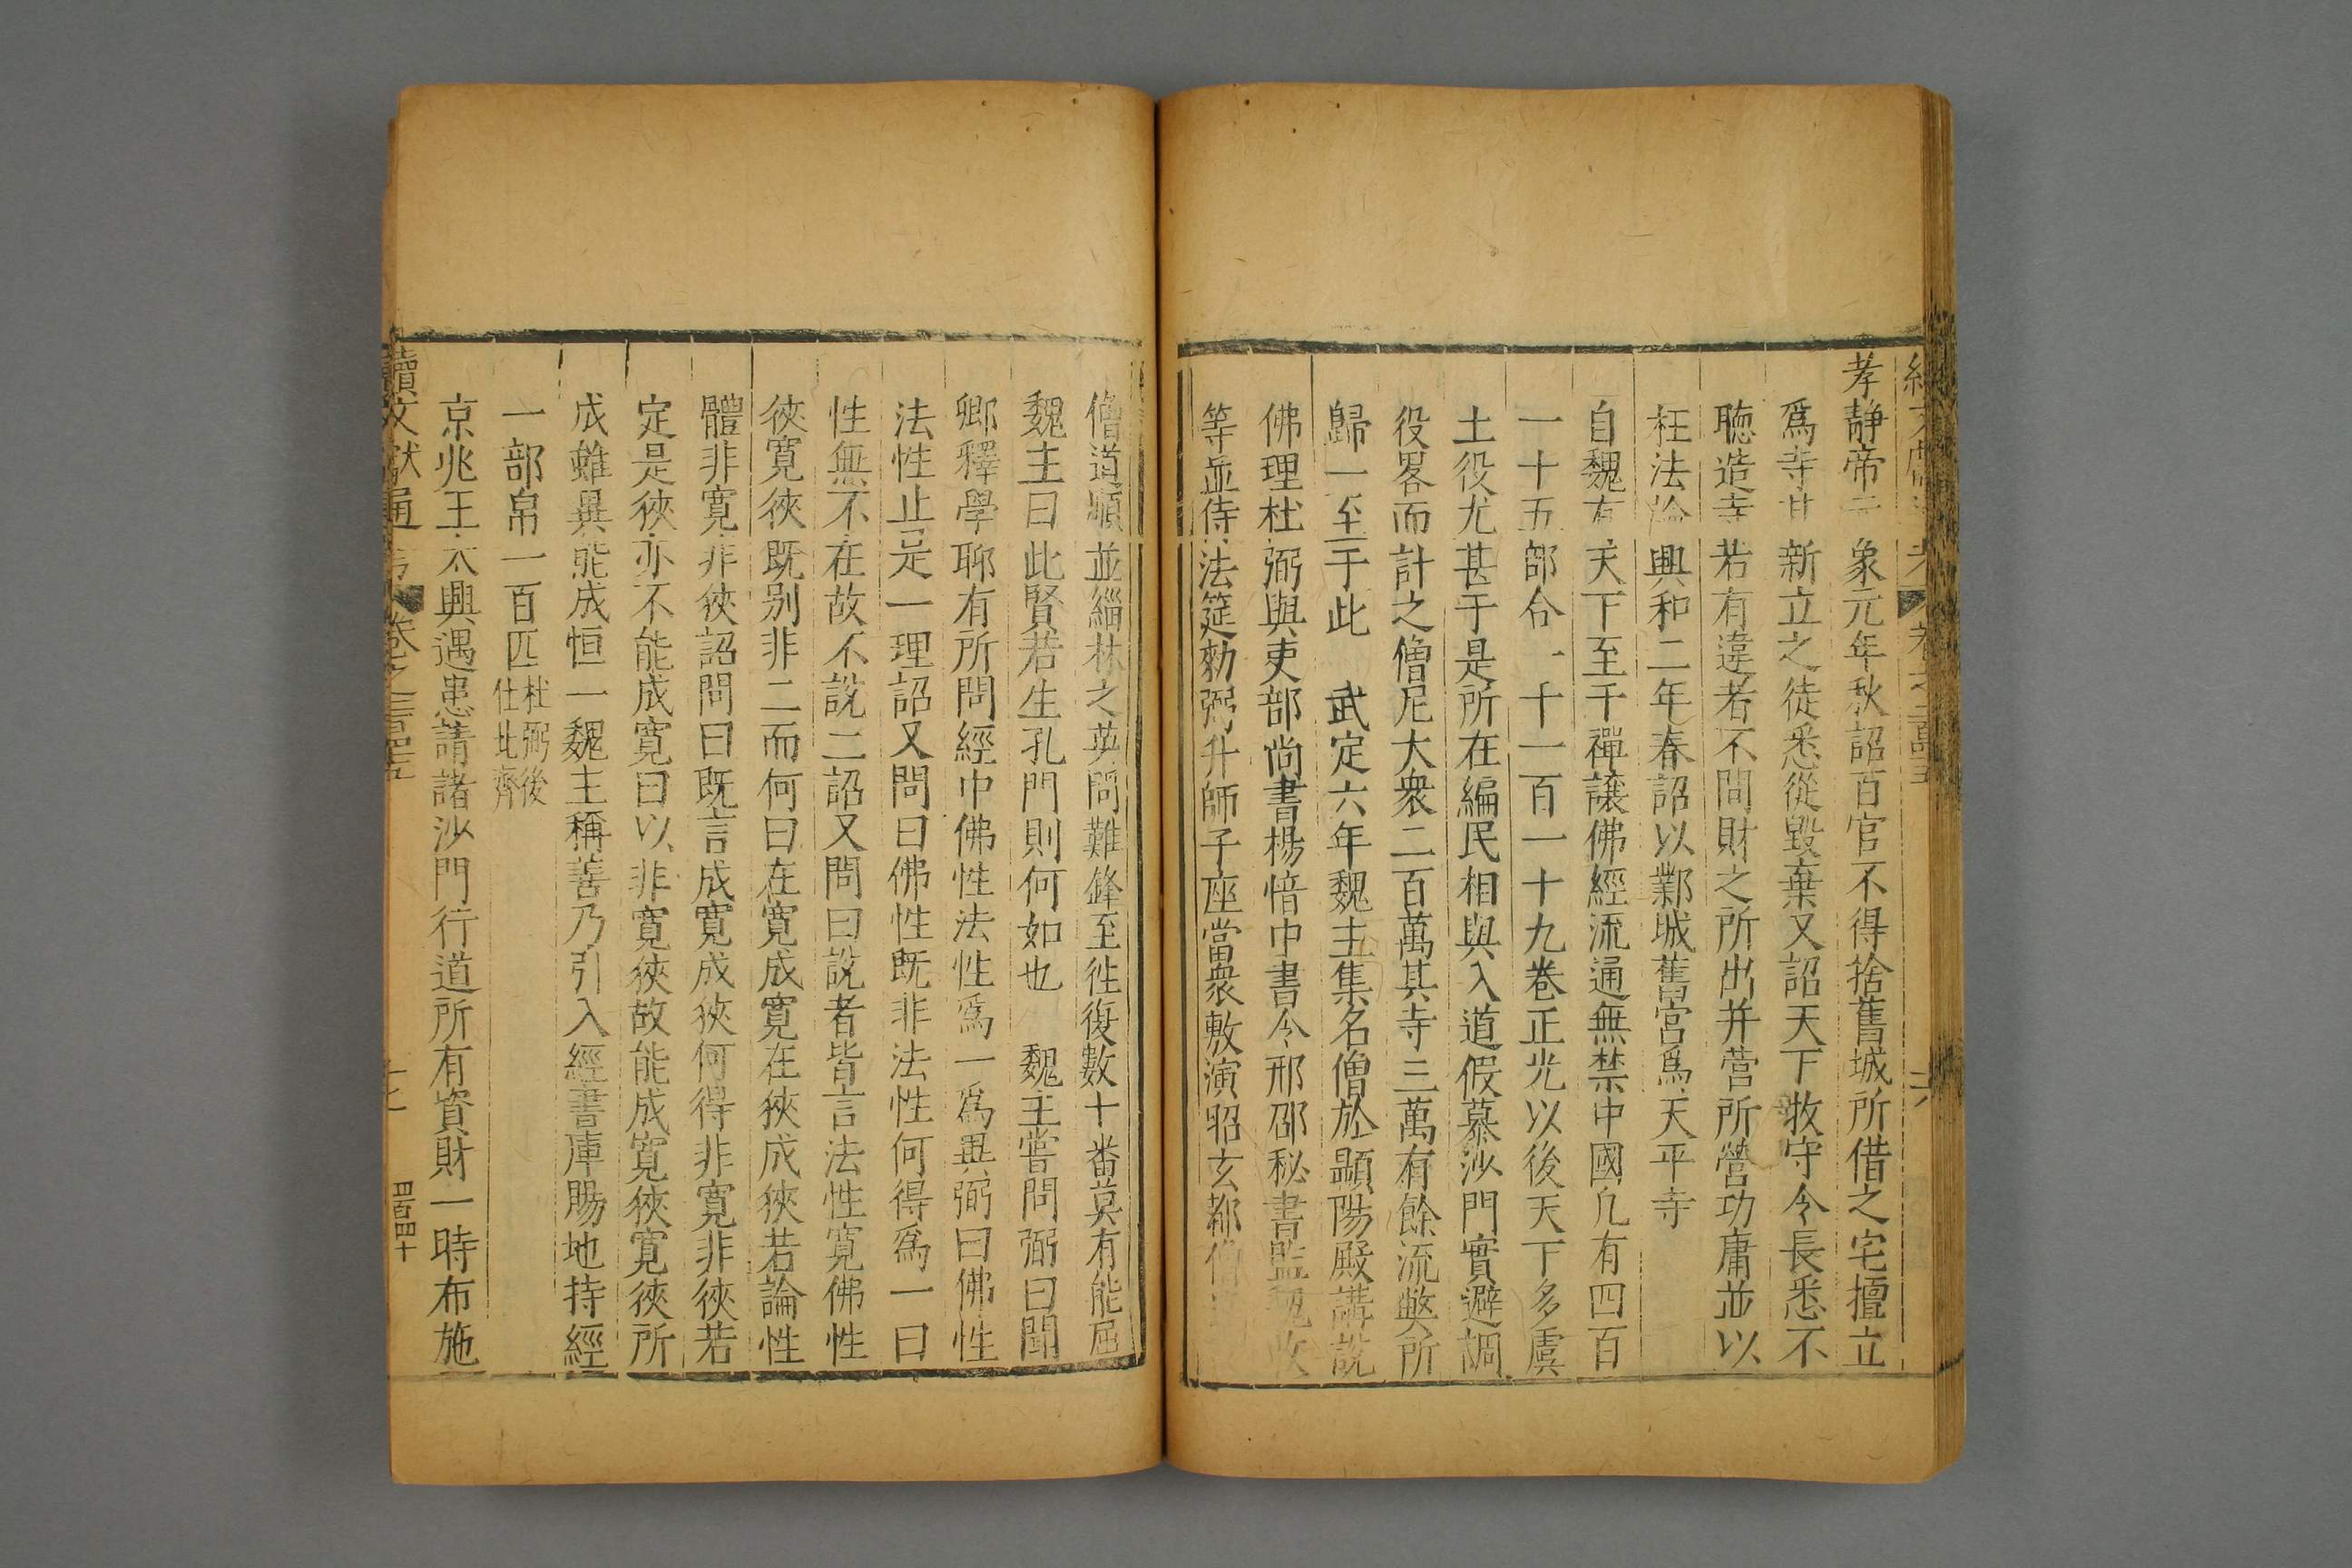 孝靜帝元象元年秋詔百官不得捨舊城所借之宅擅立
爲寺其新立之徒悉從毀棄又詔天下牧守令長悉不
聽造寺若有違者不問財之所出并營所營功庸並以
枉法論興和二年春詔以鄴城舊宮爲天平寺
自魏有天下至于禪讓佛經流通無禁中國凡有四百
一十五部合一千一百一十九卷正光以後天下多虞
土役尤甚于是所在編民相與入道假慕沙門實避調
役畧而計之僧尼大衆二百萬其寺三萬有餘流弊所
歸一至于此 武定六年魏主集名僧於顯陽殿講說
佛理杜弼與吏部尚書楊愔中書令邢邵秘書監魏收
等並侍法筵勑弼升師子座當衆敷演昭玄都僧
僧道順並緇林之英問難鋒至徃復數十番莫有能屈
魏主曰此賢若生孔門則何如也 魏主嘗問弼曰聞
卿釋學聊有所問經中佛性法性爲一爲異弼曰佛性
法性止是一理詔又問曰佛性既非法性何得爲一曰
性無不在故不說二詔又問曰說者皆言法性寬佛性
狹寬狹既别非二而何曰在寬成寬在狹成狹若論性
體非寬非狹詔問曰既言成寬成狹何得非寬非狹若
定是狹亦不能成寬曰以非寬狹故能成寬狹寬狹所
成雖異能成恒一魏主稱善乃引入經書庫賜地持經
一部帛一百匹杜弼後仕北齊
京兆王太興遇患請諸沙門行道所有資財一時布施
續文獻通考 卷之二百四十五 十七 四百四十